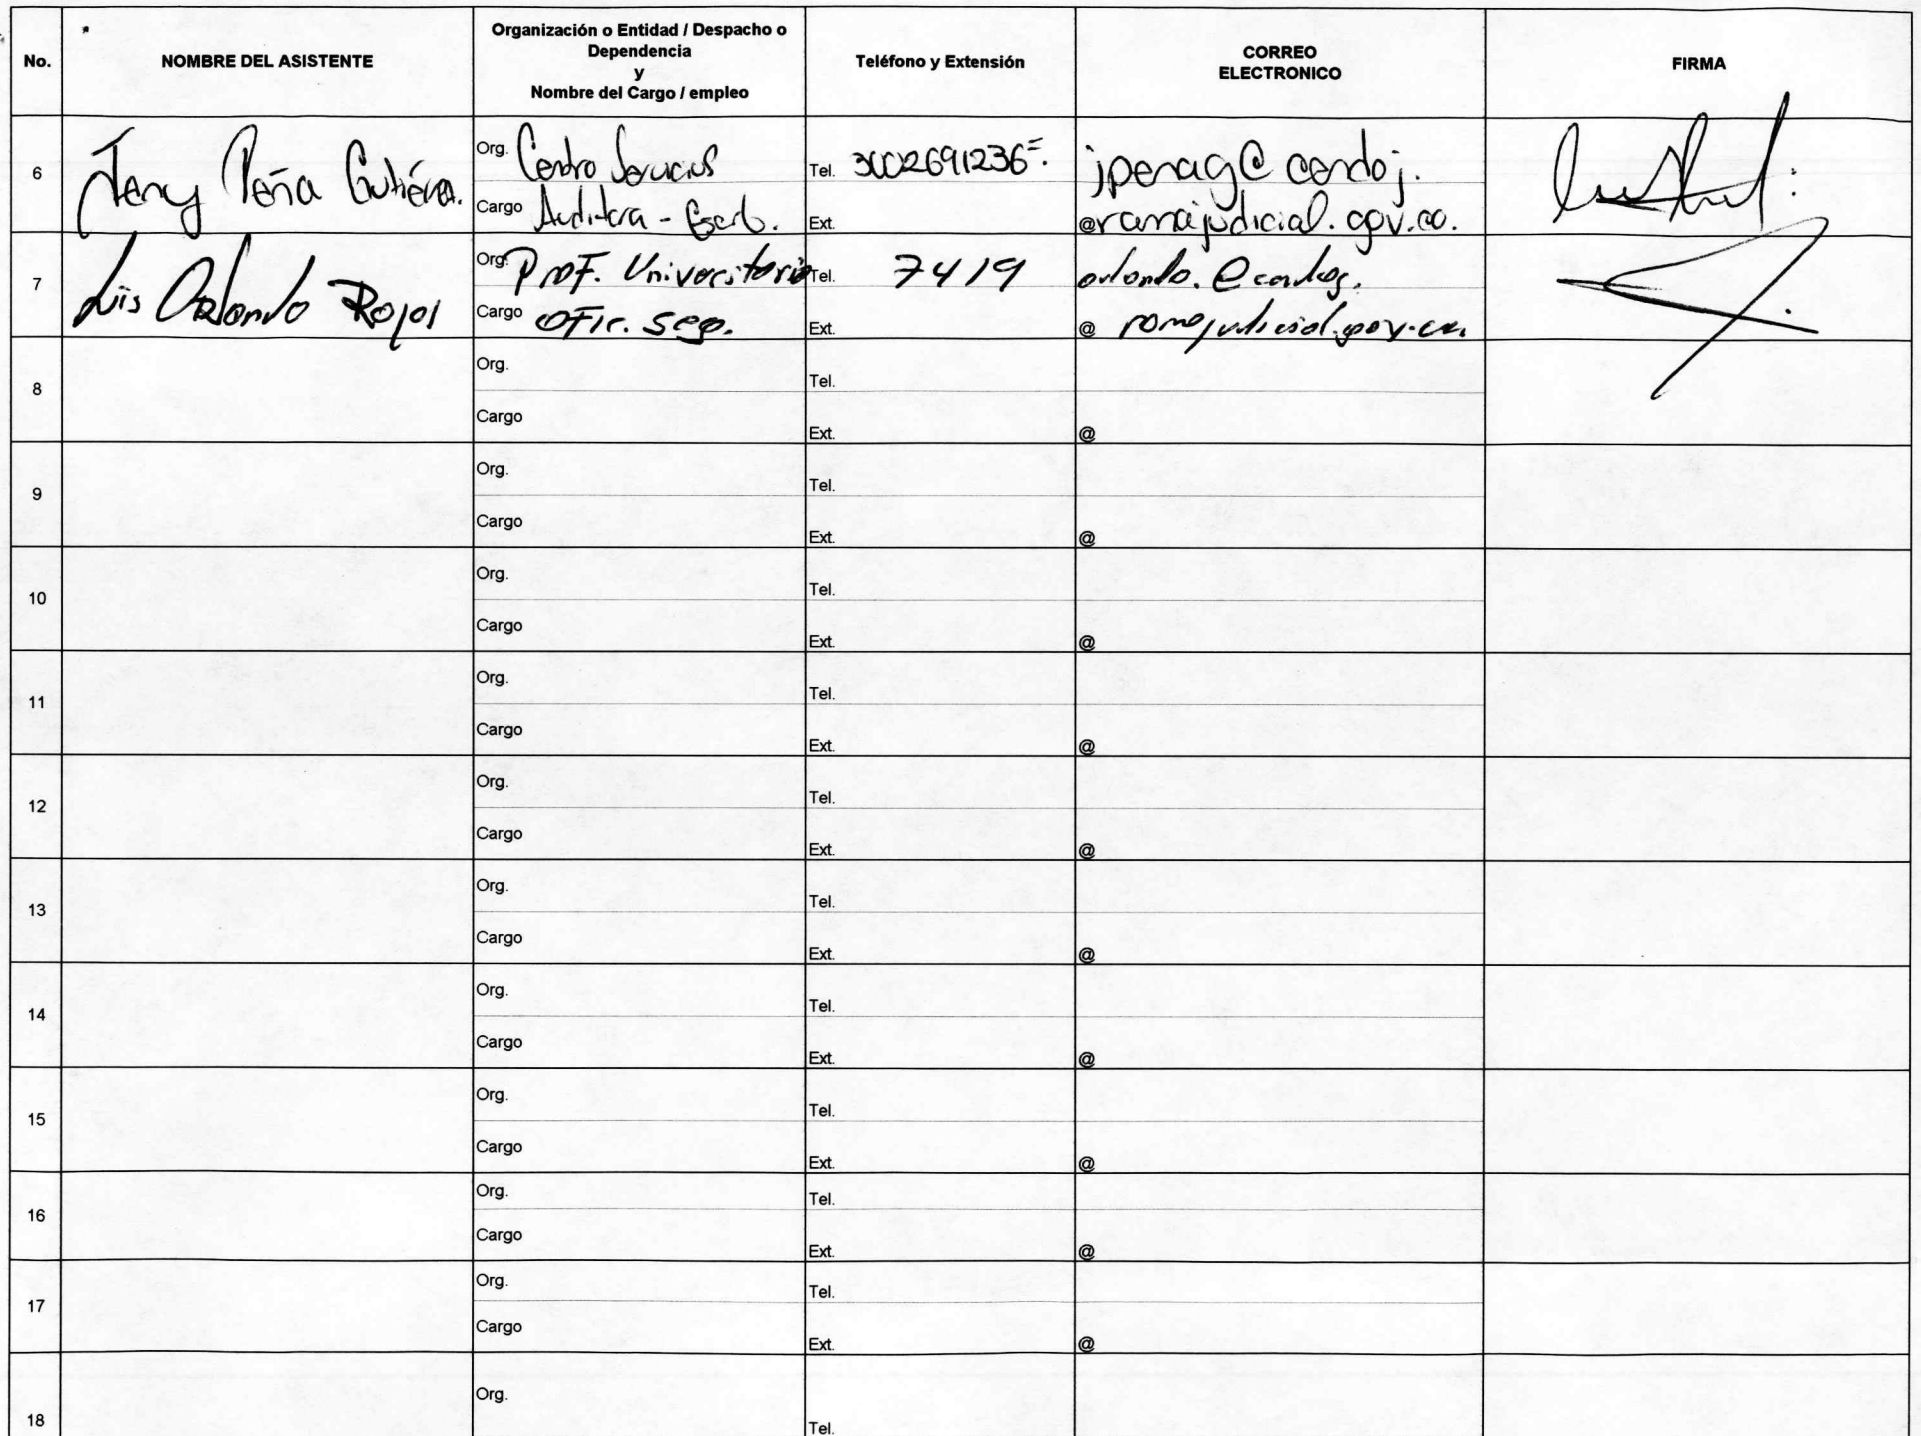 No.
NOMBRE DEL ASISTENTE
Organización o Entidad / Despacho o
Dependencia
y
Nombre del Cargo / empleo
Teléfono y Extensión
CORREO
ELECTRONICO
FIRMA
6
Jeny Peña Gutiérrez.
Org. Centro Servicios
Cargo Auditora - Escrb.
Tel. 3002691236=.
Ext.
jpenag@cendoj.
@ramajudicial.gov.co.
7
Luis Orlando Rojas
Org. Prof. Universitario
Cargo Ofic. Seg.
Tel. 7419
Ext.
orlando.@cendoj.
@ ramajudicial.gov.co
8
Org.
Cargo
Tel.
Ext.
@
9
Org.
Cargo
Tel.
Ext.
@
10
Org.
Cargo
Tel.
Ext.
@
11
Org.
Cargo
Tel.
Ext.
@
12
Org.
Cargo
Tel.
Ext.
@
13
Org.
Cargo
Tel.
Ext.
@
14
Org.
Cargo
Tel.
Ext.
@
15
Org.
Cargo
Tel.
Ext.
@
16
Org.
Cargo
Tel.
Ext.
@
17
Org.
Cargo
Tel.
Ext.
@
18
Org.
Tel.